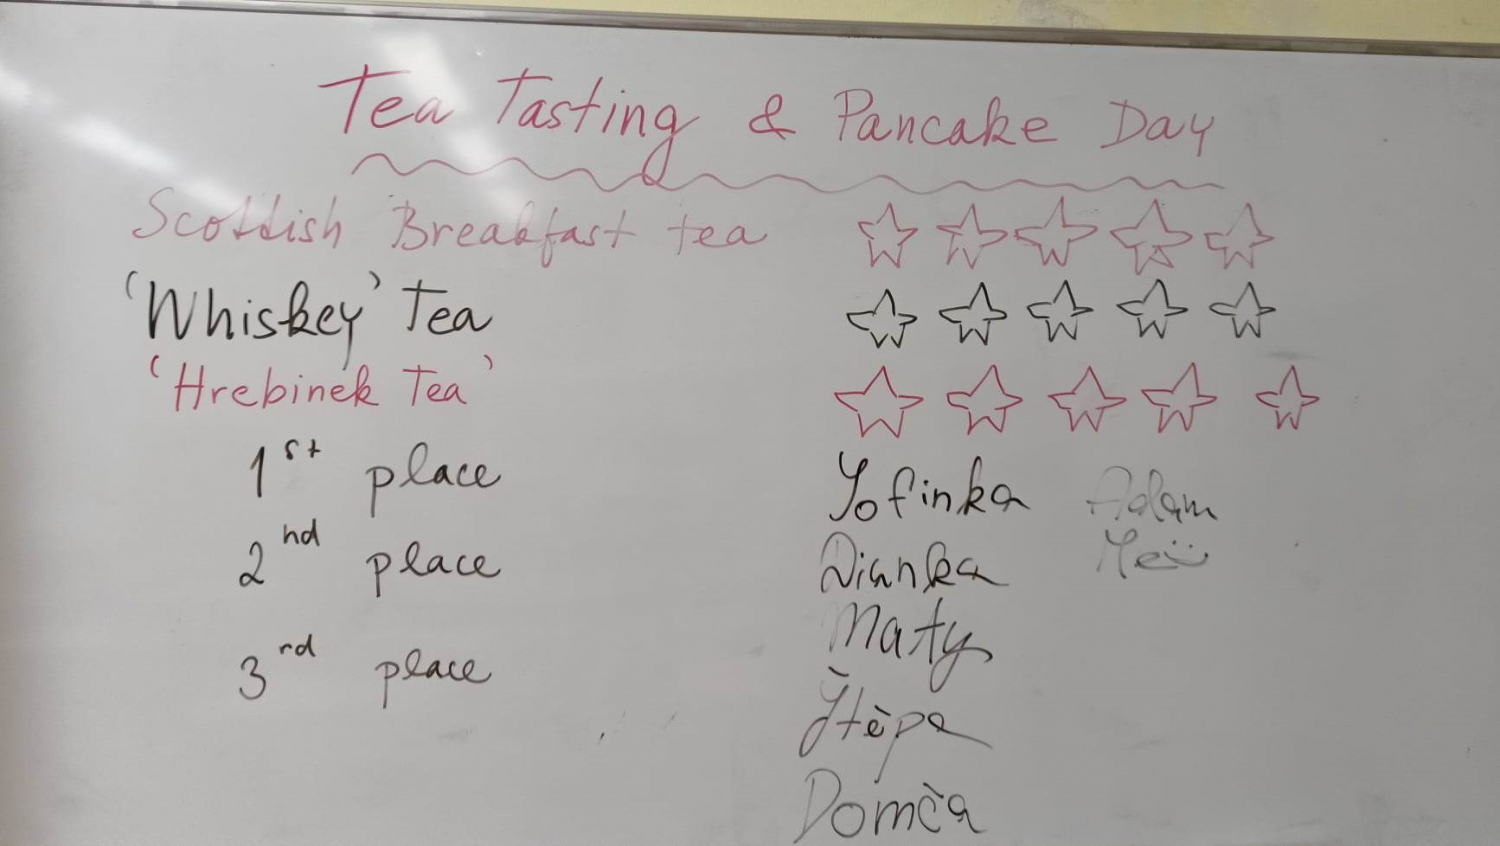 Tea Tasting & Pancake Day
Scottish Breakfast tea
'Whiskey' Tea
'Hrebinek Tea'
1st place
2nd place
3rd place
Sofinka Adam
Dianka
Maty
Štěpa
Domča